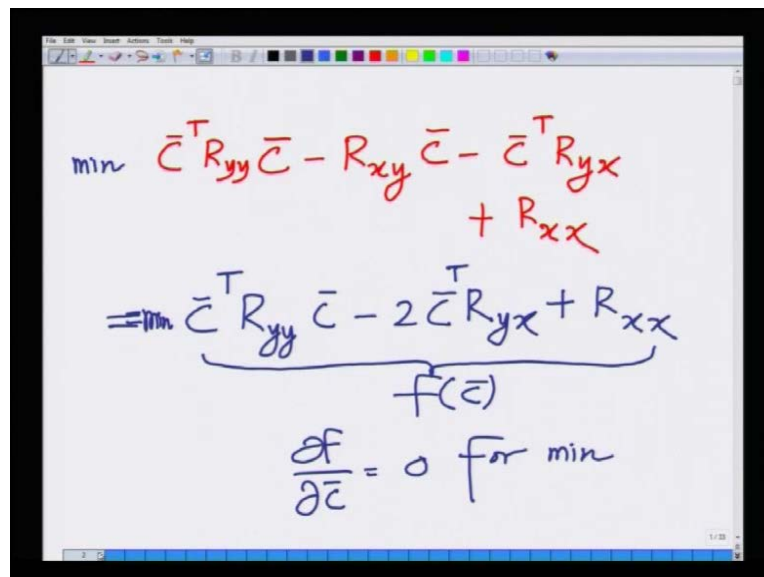 File Edit View Insert Actions Tools Help
min C̄ᵀ R_yy C̄ − R_xy C̄ − C̄ᵀ R_yx
+ R_xx
= min C̄ᵀ R_yy C̄ − 2 C̄ᵀ R_yx + R_xx
f(C̄)
∂f/∂C̄ = 0 for min
1/33
2